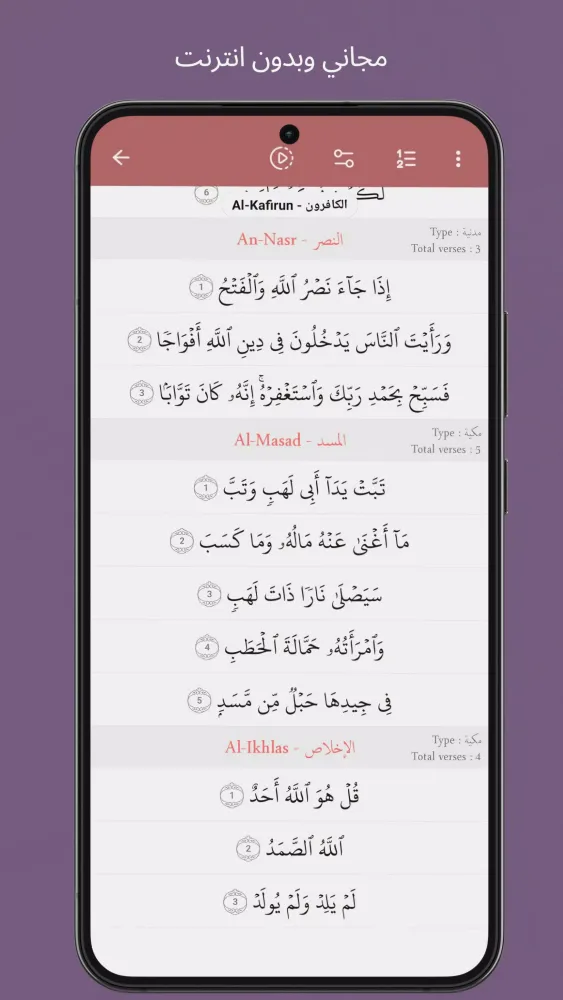 مجاني وبدون انترنت
6
Al-Kafirun - الكافرون
An-Nasr - النصر
Type : مدنية
Total verses : 3
إِذَا جَآءَ نَصۡرُ ٱللَّهِ وَٱلۡفَتۡحُ 1
وَرَأَيۡتَ ٱلنَّاسَ يَدۡخُلُونَ فِي دِينِ ٱللَّهِ أَفۡوَاجٗا 2
فَسَبِّحۡ بِحَمۡدِ رَبِّكَ وَٱسۡتَغۡفِرۡهُۚ إِنَّهُۥ كَانَ تَوَّابَۢا 3
Al-Masad - المسد
Type : مكية
Total verses : 5
تَبَّتۡ يَدَآ أَبِي لَهَبٖ وَتَبَّ 1
مَآ أَغۡنَىٰ عَنۡهُ مَالُهُۥ وَمَا كَسَبَ 2
سَيَصۡلَىٰ نَارٗا ذَاتَ لَهَبٖ 3
وَٱمۡرَأَتُهُۥ حَمَّالَةَ ٱلۡحَطَبِ 4
فِي جِيدِهَا حَبۡلٞ مِّن مَّسَدِۭ 5
Al-Ikhlas - الإخلاص
Type : مكية
Total verses : 4
قُلۡ هُوَ ٱللَّهُ أَحَدٌ 1
ٱللَّهُ ٱلصَّمَدُ 2
لَمۡ يَلِدۡ وَلَمۡ يُولَدۡ 3